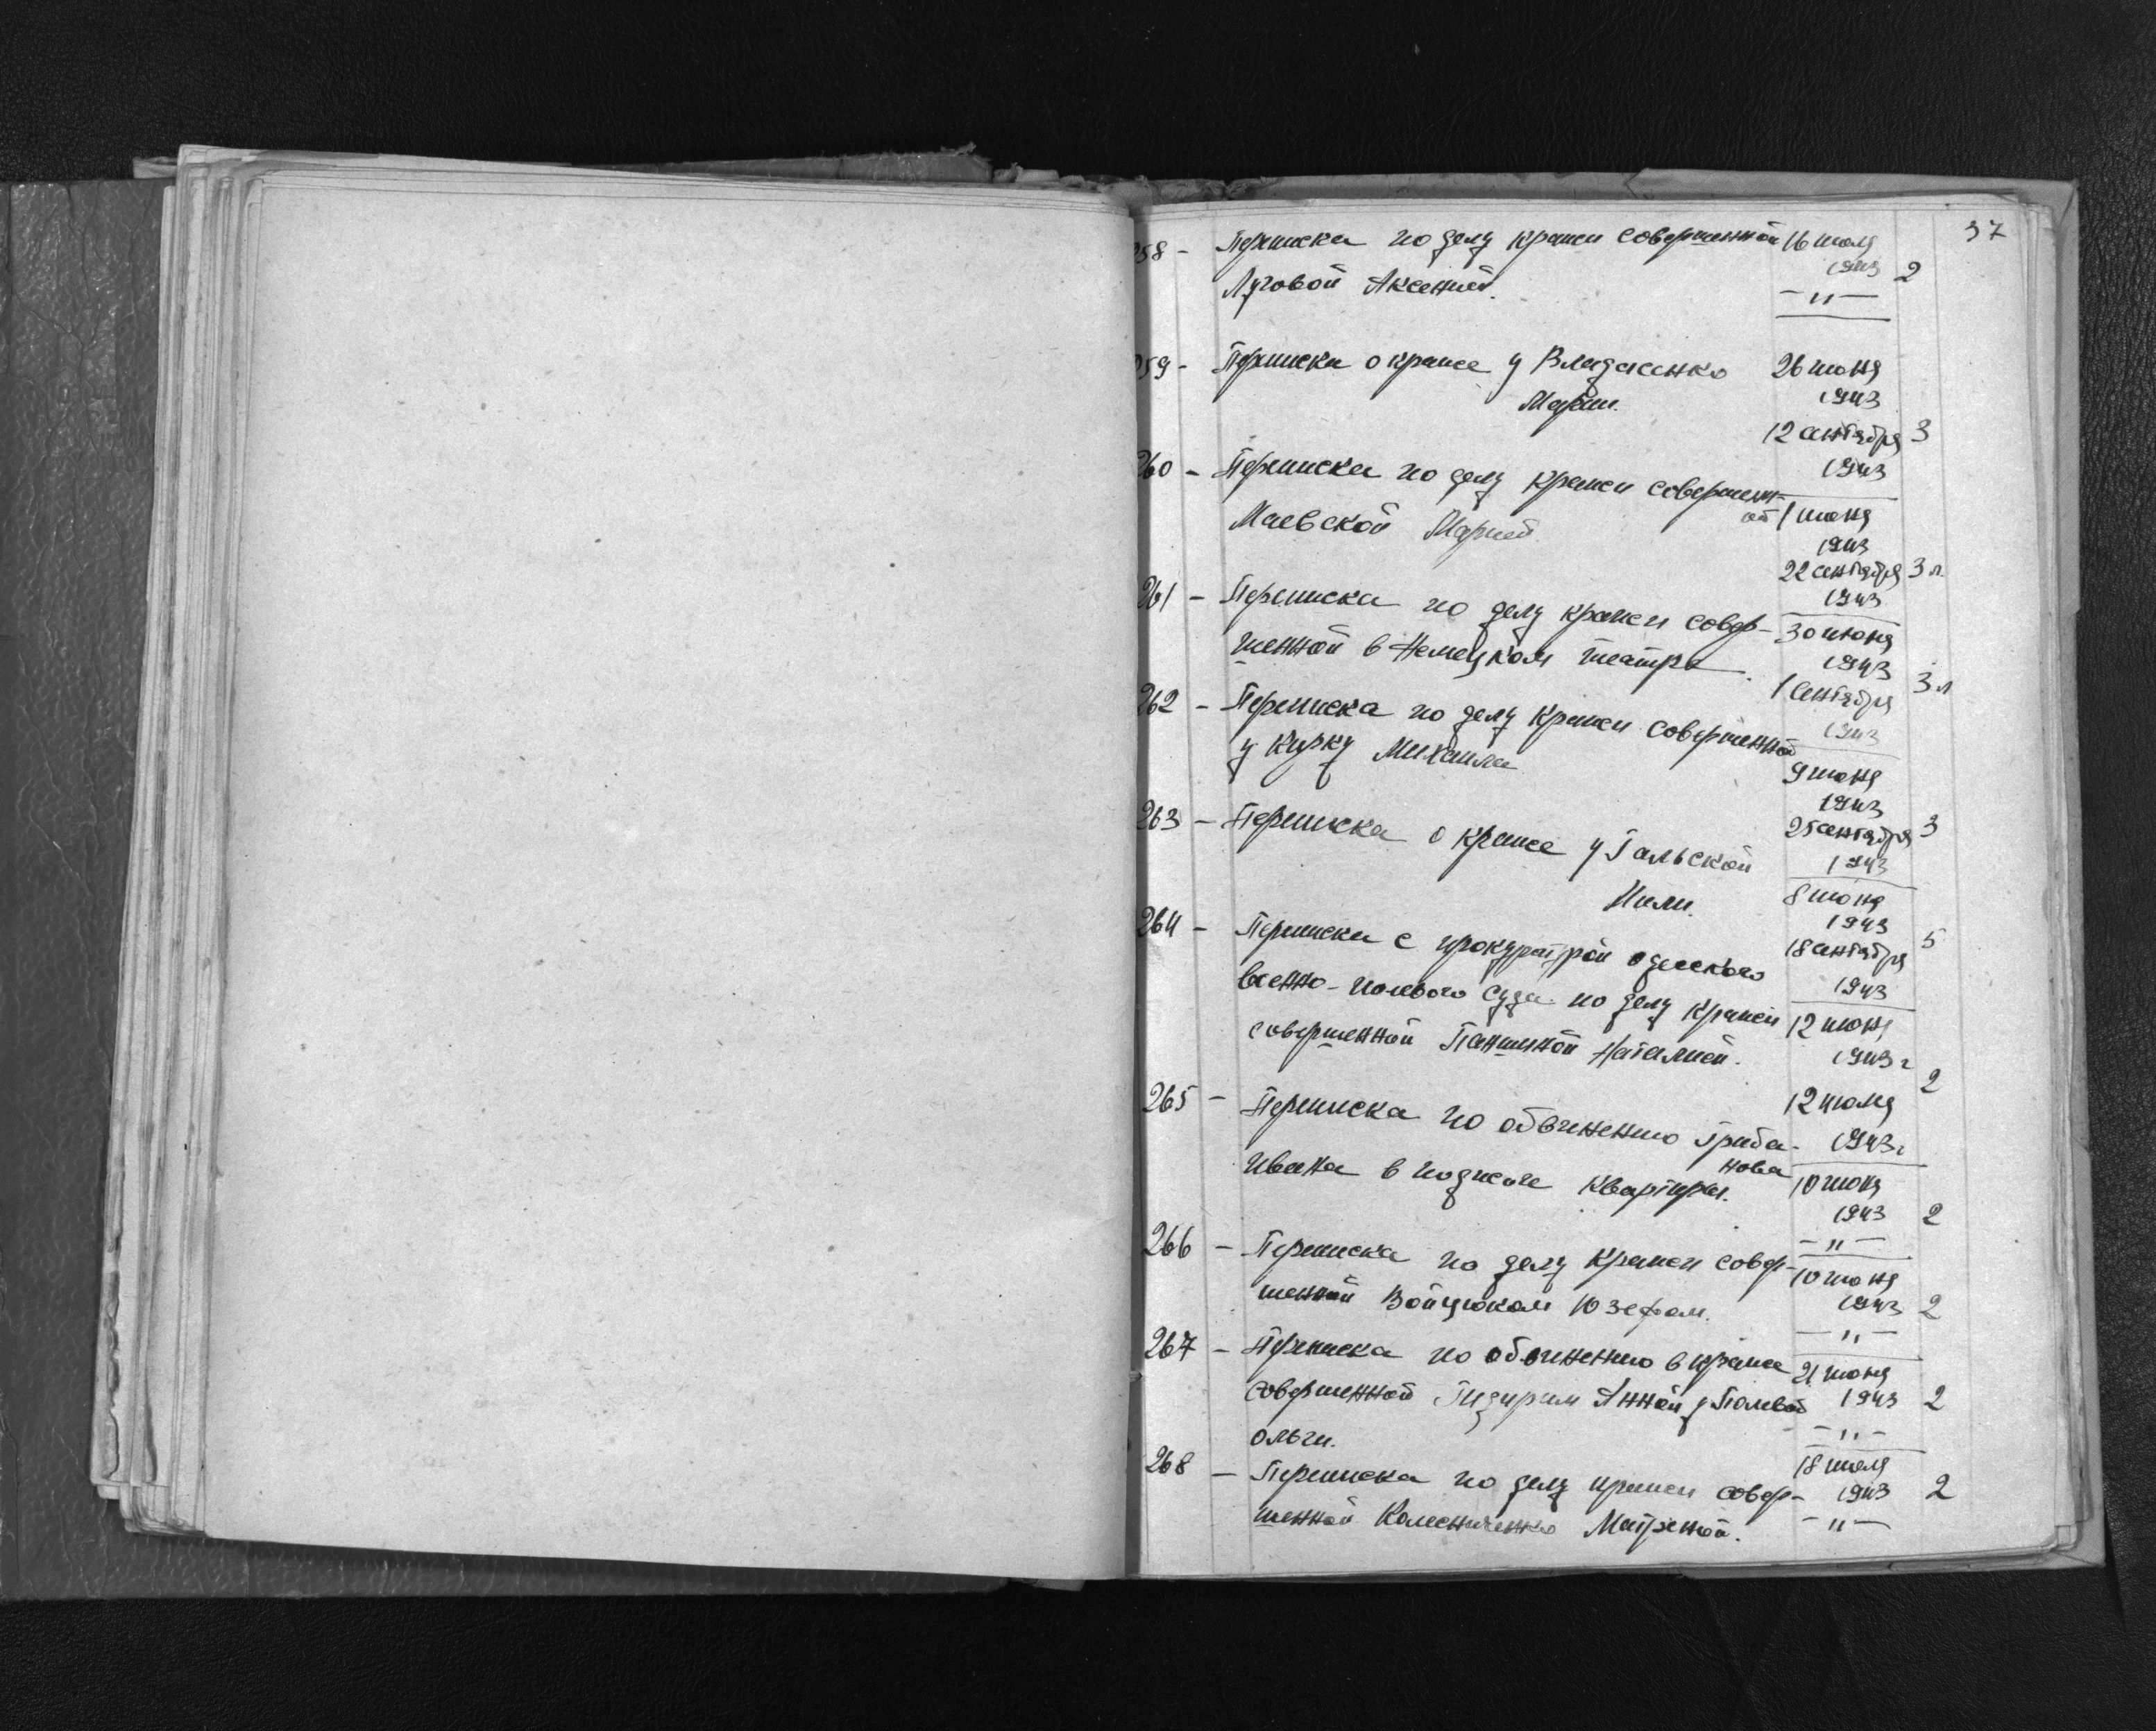 37
258 - Переписка по делу кражи совершенной 16 июля
1943 2
Луговой Аксенией. —"—
259 - Переписка о краже у Владженко 26 июня
Марии. 1943
12 сентября 3
1943
260 - Переписка по делу кражи совершенн-
ой 1 июня
Маевской Марией. 1943
22 сентября 3 л.
1943
261 - Переписка по делу кражи совер- 30 июня
шенной в Немецком театре. 1943
1 сентября 3 л
1943
262 - Переписка по делу кражи совершенной
у Курку Михаила 9 июня
1943
25 сентября 3
1943
263 - Переписка о краже у Гальской
8 июня
1943
18 сентября 5
1943
264 - Переписка с прокуратурой одесского
военно-полевого суда по делу кражи 12 июня
совершенной Паншиной Наталией. 1943 г
12 июля 2
1943 г
265 - Переписка по обвинению Гриба-
нова
Ивана в поджоге квартиры. 10 июня
1943 2
—"—
266 - Переписка по делу кражи совер- 10 июня
шенной Войцюком Юзефом. 1943 2
—"—
267 - Переписка по обвинению в краже 21 июня
совершенной Анной у Полевой 1943 2
Ольги. —"—
268 - Переписка по делу кражи совер- 18 июля
1943 2
шенной Коменченко Матреной. —"—